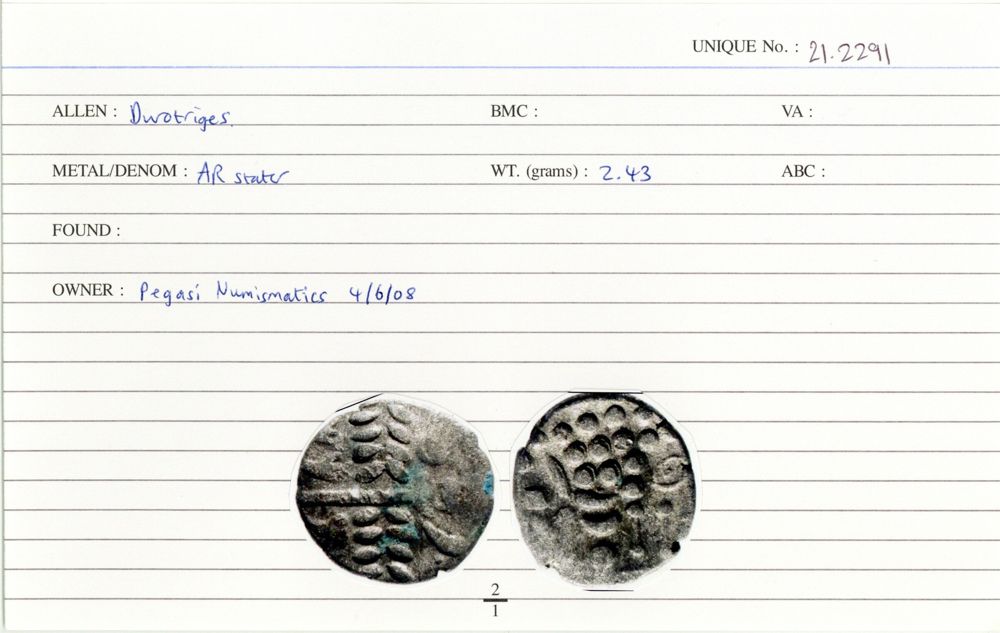 UNIQUE No. : 21.2291
ALLEN : Durotriges. BMC : VA :
METAL/DENOM : AR stater WT. (grams) : 2.43 ABC :
FOUND :
OWNER : Pegasi Numismatics 4/6/08
2
1